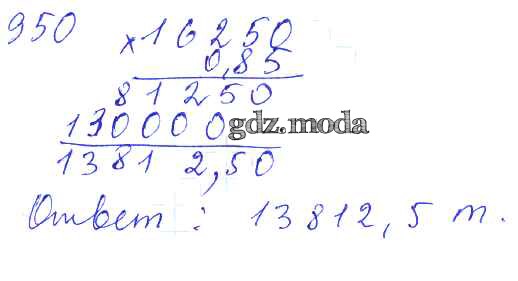 950
×16250
0,85
81250
130000
gdz.moda
13812,50
Ответ: 13812,5 т.